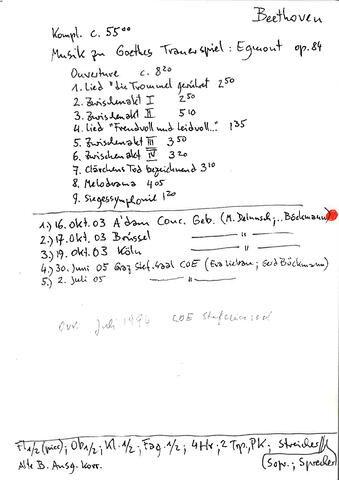 Beethoven
Kompl. c. 55⁰⁰
Musik zu Goethes Trauerspiel: Egmont op. 84
Ouverture c. 8²⁰
1. Lied "die Trommel gerühret 2⁵⁰
2. Zwischenakt I 2⁵⁰
3. Zwischenakt II 5¹⁰
4. Lied "Freudvoll und leidvoll..." 1³⁵
5. Zwischenakt III 3⁵⁰
6. Zwischenakt IV 3²⁰
7. Clärchens Tod bezeichnend 3¹⁰
8. Melodrama 4⁰⁵
9. Siegessymphonie 1²⁰
1.) 16. Okt. 03 A'dam Conc. Geb. (M. ; .. Böckmann)
2.) 17. Okt. 03 Brüssel — " —
3.) 19. Okt. 03 Köln — " —
4.) 30. Juni 05 Graz Stef. saal COE (Eva ; Gerd Böckmann)
5.) 2. Juli 05 — " —
Ouv. Juli 1994 COE Stefaniensaal
Fl 1/2 (picc); Ob 1/2; Kl. 1/2; Fag. 1/2; 4 Hr; 2 Trp, PK; Streicher
Alte B. Ausg. korr. (Sopr.; Sprecher)